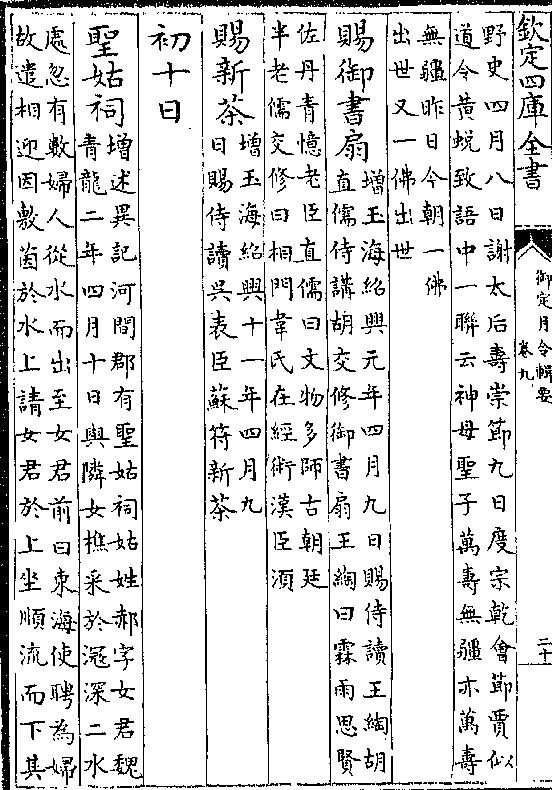 欽定四庫全書
御定月令輯要
卷九
二十
野史四月八日謝太后壽崇節九日度宗乾會節賈似
道令黄蜕致語中一聯云神母聖子萬壽無疆亦萬壽
無疆昨日今朝一佛
出世又一佛出世
賜御書扇
增玉海紹興元年四月九日賜侍讀王綯胡
直儒侍講胡交修御書扇王綯曰霖雨思賢
佐丹青憶老臣直儒曰文物多師古朝廷
半老儒交修曰相門韋氏在經術漢臣湏
賜新茶
增玉海紹興十一年四月九
日賜侍讀吳表臣蘇符新茶
初十日
聖姑祠
增述異記河間郡有聖姑祠姑姓郝字女君魏
青龍二年四月十日與隣女樵采於滱深二水
處忽有數婦人從水而出至女君前曰東海使聘為婦
故遣相迎因敷茵於水上請女君於上坐順流而下其